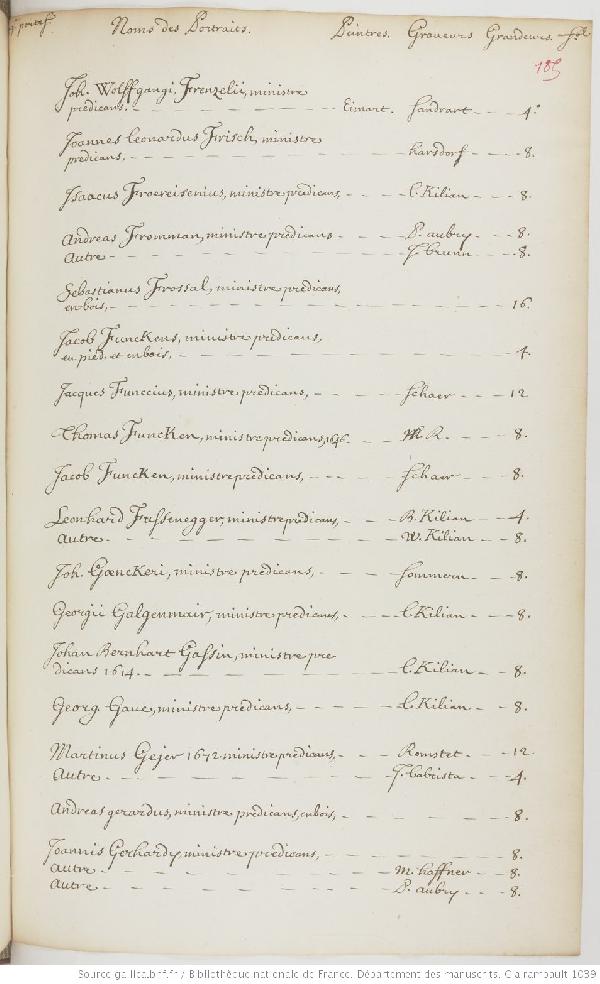 Noms des Portraits. Peintres. Graveurs Grandeurs.
185
Joh. Wolffgangi. Frenzelii, ministre
predicans. Eimart. Sandrart - - - 4°
Joannes Leonardus Frisch, ministre
predicans, Karsdorf - - 8.
Isaacus Froereisenius, ministre predicans, - - - C. Kilian - - - 8.
Andreas Fromman, ministre predicans - - - P. aubry - - - 8.
Autre - - - J. brunn - - 8.
Sebastianus Frossal, ministre predicans,
en bois, - - - 16.
Jacob Funckens, ministre predicans,
en pied. et en bois, - - - 4.
Jacques Funccius, ministre predicans, - - - Schaer - - - 12
Thomas Funcken, ministre predicans, 1646. - - - M. R. - - - 8.
Jacob Funcken, ministre predicans, - - - Schaer - - - 8.
Leonhard Fussenegger, ministre predicans, - - - B. Kilian - - - 4.
Autre - - - W. Kilian - - 8.
Joh. Gœnckeri, ministre predicans, - - - Sommern - - - 8.
Georgii Galgenmair, ministre predicans, - - - C. Kilian - - - 8.
Johan Bernhart Gassin, ministre pre
dicans 1614. - - - C. Kilian - - 8.
Georg Gaue, ministre predicans, - - - C. Kilian - - - 8.
Martinus Gejer 1672 ministre predicans, - - - Romstet - - - 12.
Autre - - - J. babtista - - 4.
Andreas gerardus, ministre predicans, en bois, - - - 8.
Joannis Gerhardy, ministre predicans, - - - 8.
Autre - - - M. haffner - - 8.
Autre - - - P. aubry - - - 8.
Source gallica.bnf.fr / Bibliothèque nationale de France. Département des manuscrits. Clairambault 1039